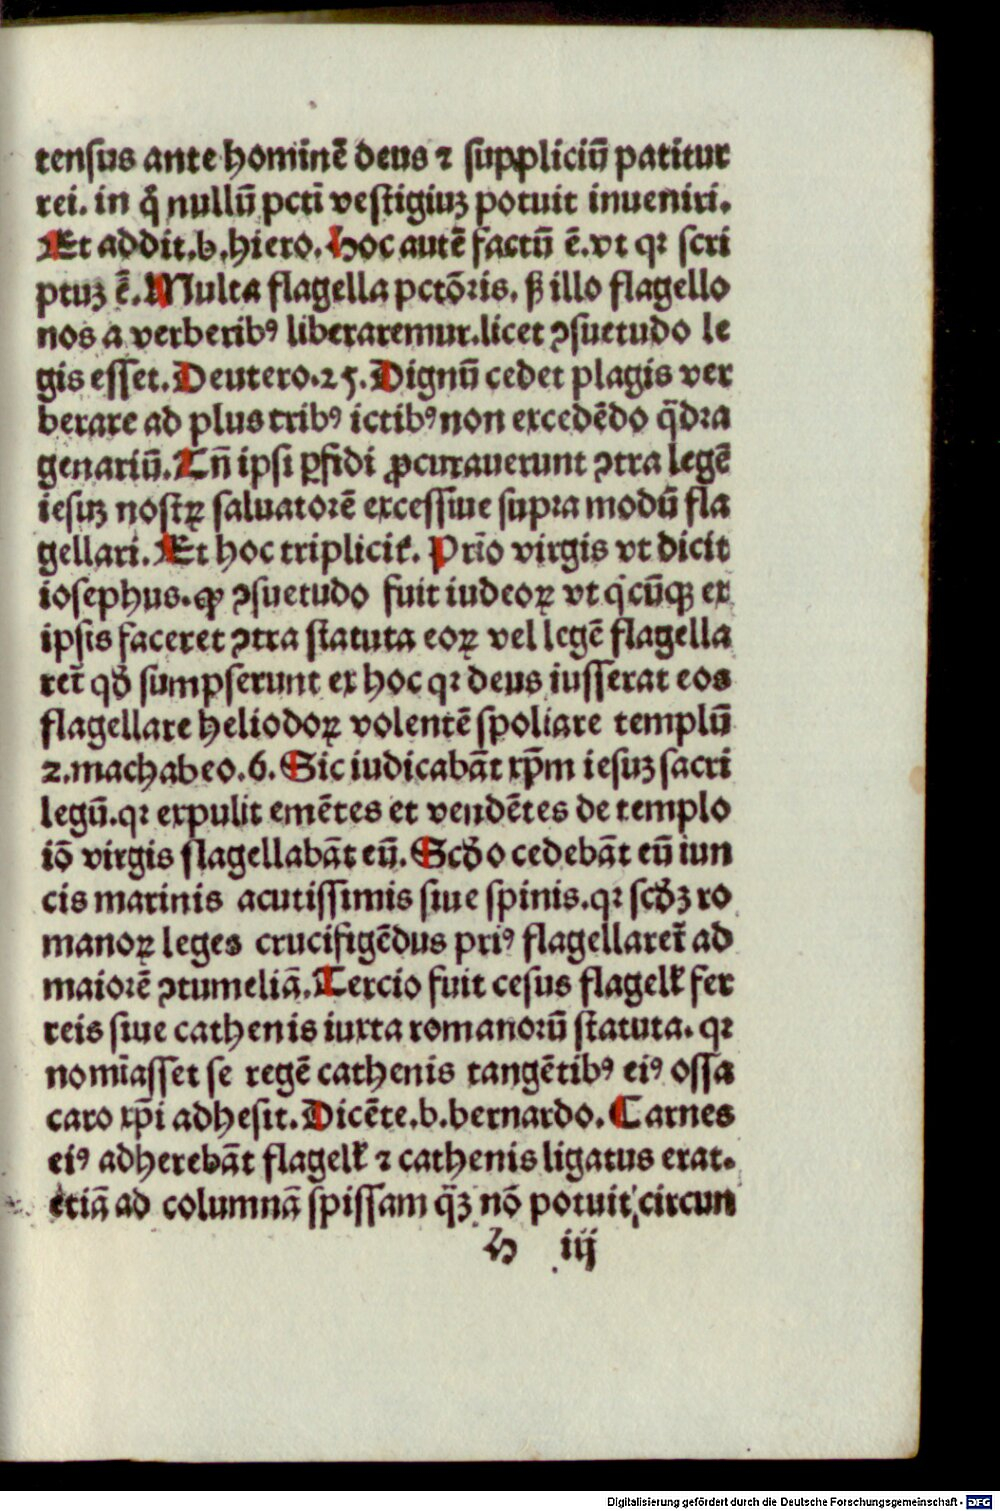 tensus ante hominē deus ⁊ suppliciū patitur
rei. in q̊ nullū pcti̅ vestigiuꝫ potuit inueniri.
Et addit.b.hiero. Hoc autē factū ē.vt qꝛ scri
ptuꝫ ē. Multa flagella pctōꝛis. ß illo flagello
nos a verberibꝰ liberaremur.licet ꝯsuetudo le
gis esset. Deutero.25. Dignū cedet plagis ver
berare ad plus tribꝰ ictibꝰ non excedēdo q̄dꝛa
genariū. Tn̄ ipsi ꝑfidi ꝓcurauerunt ꝯtra legē
iesuꝫ nostꝝ saluatoꝛē excessiue supꝛa modū fla
gellari. Et hoc triplicit̾. Pri̅o virgis vt dicit
iosephus. ꝙ ꝯsuetudo fuit iudeoꝝ vt q̇cūqꝫ ex
ipsis faceret ꝯtra statuta eoꝝ vel legē flagella
ret̄ qđ sumpserunt ex hoc qꝛ deus iusserat eos
flagellare heliodoꝝ volentē spoliare templū
2.machabeo.6. Sic iudicabāt xp̄m iesuꝫ sacri
legū.qꝛ expulit emētes et vendētes de templo
iō virgis flagellabāt eū. Scđo cedebāt eū iun
cis marinis acutissimis siue spinis.qꝛ scđꝫ ro
manoꝝ leges crucifigēdus priꝰ flagellaret̄ ad
maioꝛē ꝯtumeliā. Tercio fuit cesus flagelꝉ fer
reis siue cathenis iuxta romanoꝛū statuta. qꝛ
nomi̅asset se regē cathenis tangētibꝰ eiꝰ ossa
caro xp̄i adhesit. Dicēte.b.bernardo. Carnes
eiꝰ adherebāt flagelꝉ ⁊ cathenis ligatus erat.
etiā ad columnā spissam q̄ꝫ nō potuit circun
h iij
Digitalisierung gefördert durch die Deutsche Forschungsgemeinschaft - DFG